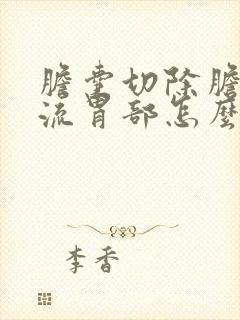 膽囊切除膽
流胃部怎麼
李香